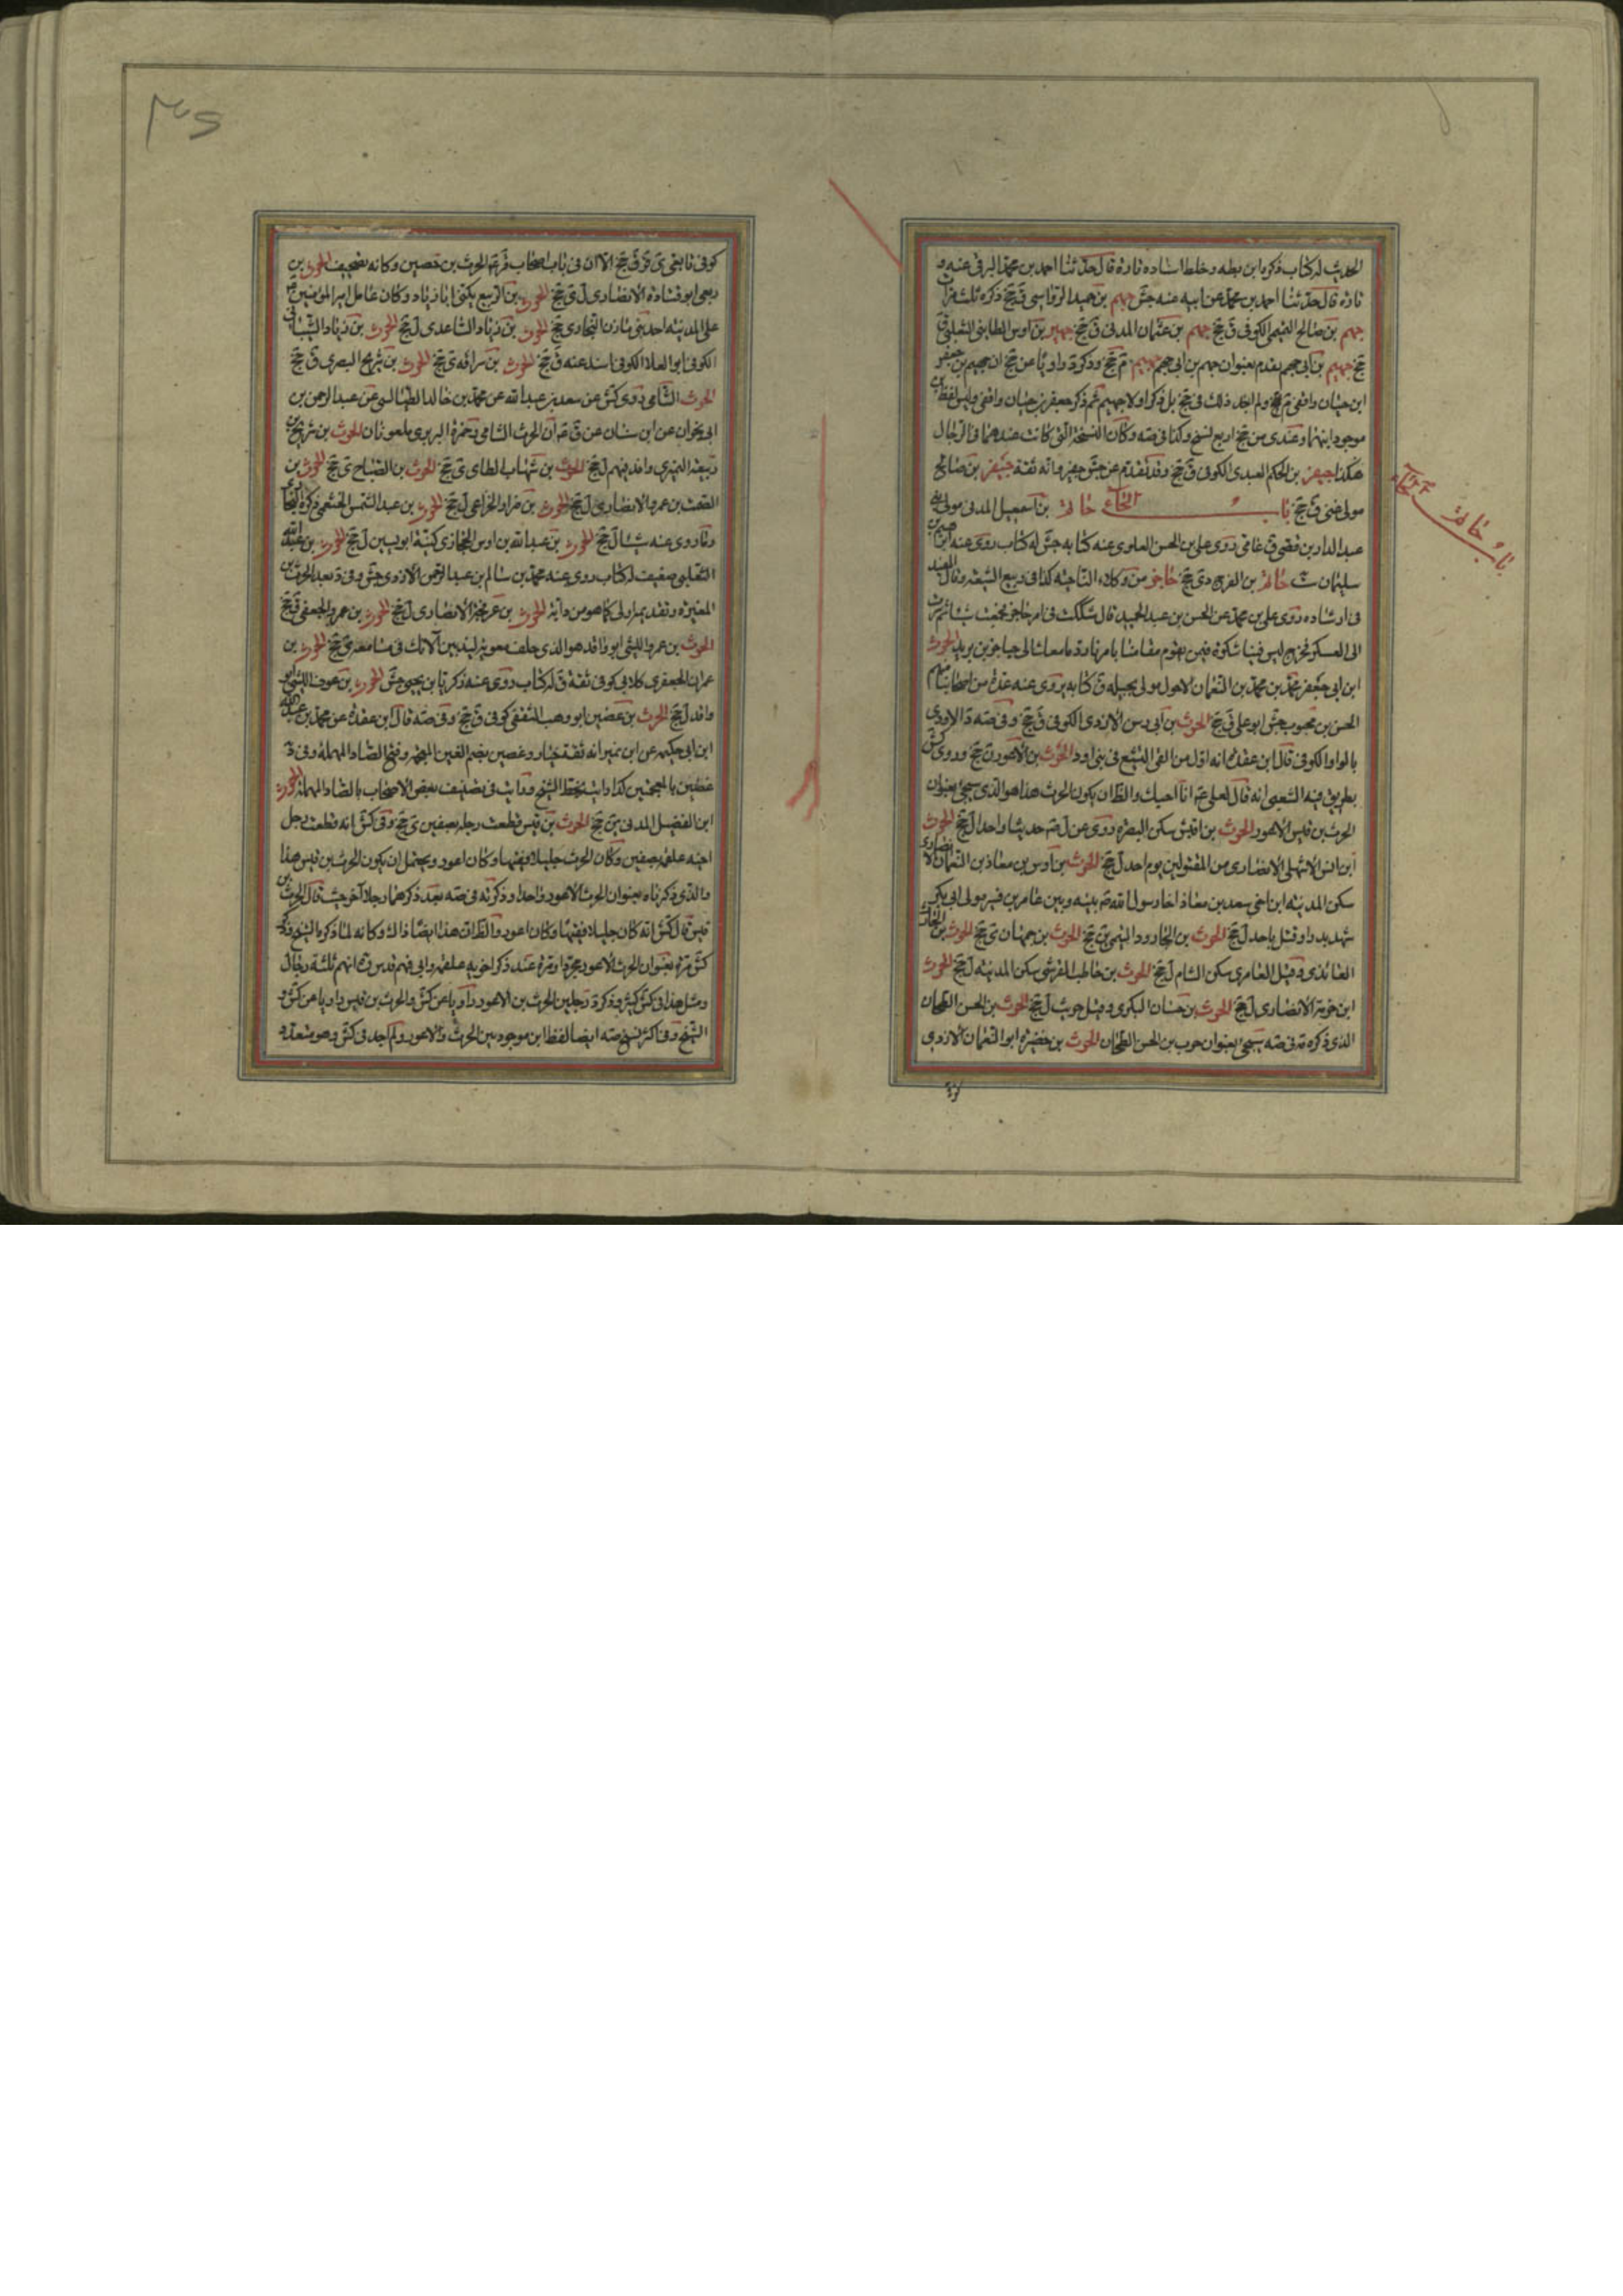 الحديث له كتاب ذكره ابن بطه وخلط اسناده تارة قال حدثنا احمد بن محمد البرقي عنه و
تارة قال حدثنا احمد بن محمد عن ابيه عنه جش جهم بن حميد الرواسي ق جخ ذكره ثلث مرات
جهم بن صالح التميمي الكوفي ق جخ جهم بن عثمان المدني ق جخ جهير بن اوس الطائي
جخ جهيم بن ابي جهم تقدم بعنوان جهم بن ابي جهم جهيم م جخ وذكر د راويا عن جخ ان جهيم بن جعفر
ابن حيان واقفي ولم اجد ذلك في جخ بل ذكر اولا جهيم ثم ذكر جعفر بن حيان واقفي وليس لفظ ابن
موجودا بينهما وعندي من جخ اربع نسخ وكذا في صه وكان النسخة التي كانت عندهما في الرجال
هكذا جيفر بن الحكم العبدي الكوفي ق جخ وقد تقدم عن جش جفير وانه ثقة جيفر بن صالح
مولى ق جخ باب الحاء حاتم بن اسمعيل المدني مولى بني
عبد الدار بن قصي ق عامي روى علي بن الحسن العلوي عنه كتابه جش له كتاب روى عنه ابن
سليمان ست حاتم بن الفرج دى جخ حاجز من وكلاء الناحية كذا في ربيع الشيعة وقال المفيد
في ارشاده روى علي بن محمد عن الحسن بن عبد الحميد قال شككت في امر حاجز فجمعت شيئا ثم صرت
الى العسكر فخرج ليس فينا شك ولا فيمن يقوم مقامنا بامرنا رد ما معك الى حاجز بن يزيد الحرث
ابن ابي جعفر محمد بن محمد بن النعمان الاحول مولى بجيله ق كتابه يروى عنه عدة من اصحابنا منهم
الحسن بن محبوب جش ابو علي ق جخ الحرث بن ابي رسن الاودي الكوفي ق جخ وفي صه د الاودي
بالواو الكوفي قال ابن عقده انه اول من القى التشيع في بني اود الحرث بن الاعور ن جخ وروى كش
بطريق فيه الشعبي انه قال لعلي ع انا احبك والظ ان يكون الحرث هذا هو الذي سيجئ بعنوان
الحرث بن قيس الاعور الحرث بن اقيش سكن البصره روى عن ل ص حديثا واحدا ل جخ الحرث
ابن انس الاشهلي الانصاري من المقتولين يوم احد ل جخ الحرث بن اوس بن معاذ بن النعمان الانصاري
سكن المدينه ابن اخي سعد بن معاذ اخا رسول الله ص بينه وبين عامر بن فهيره مولى ابي بكر
شهد بدرا وقتل باحد ل جخ الحرث بن الجارود التيمي ين جخ الحرث بن جمهان ى جخ الحرث بن الحارث
الغامدي وقيل العامري سكن الشام ل جخ الحرث بن حاطب القرشي سكن المدينه ل جخ الحرث
ابن خزمة الانصاري ل جخ الحرث بن حسان البكري وقيل حريث ل جخ الحرث بن الحسن الطحان
الذي ذكره د في صه سيجئ بعنوان حرب بن الحسن الطحان الحرث بن حضيره ابو النعمان الازدي
باب حاتم
كوفي تابعي ى قر ق جخ الا ان في باب اصحاب قر ع الحرث بن حصين وكانه تصحيف الحرث بن
ربعي ابو قتادة الانصاري ل ى جخ الحرث بن الربيع يكنى ابا زياد وكان عامل امير المؤمنين ع
على المدينه احد بني مازن النجار ى جخ الحرث بن زياد الساعدي ل جخ الحرث بن زياد الشيباني
الكوفي ابو العلاء الكوفي اسند عنه ق جخ الحرث بن سراقه ى جخ الحرث بن شريح البصري ق جخ
الحرث الشامي روى كش عن سعد بن عبد الله عن محمد بن خالد الطيالسي عن عبد الرحمن بن
ابي نجران عن ابن سنان عن ق ع ان الحرث الشامي وحمزة البربري ملعونان الحرث بن شريح بن
ربيعه النميري وافد فيهم ل جخ الحرث بن شهاب الطاي ى جخ الحرث بن الصباح ى جخ الحرث بن
الصمت بن عمرو الانصاري ل جخ الحرث بن ضرار الخزاعي ل جخ الحرث بن عبد الشمس الخثعمي ذكره
وما روى عنه شيئا ل جخ الحرث بن عبد الله بن اوس الحجازي كنيته ابو يسين ل جخ الحرث بن عبد الله
التغلبي ضعيف له كتاب روى عنه محمد بن سالم بن عبد الرحمن الازدي جش وفي د بعد الحرث بن
المغيره وتقديمه اولى كما هو من دابه الحرث بن الانصاري ل جخ الحرث بن عمرو الجعفي ق جخ
الحرث بن عمرو الليثي ابو واقد هو الذي حلف معويه ليذيبن الآنك في مسامعه ى جخ الحرث بن
عمران الجعفري كلابي كوفي ثقة ق له كتاب روى عنه زكريا بن يحيى جش الحرث بن عوف الليثي ابو
واقد ل جخ الحرث بن غضين ابو وهب الثقفي كوفي ق جخ وفي صه قال ابن عقدة عن محمد بن عبد الله
ابن ابي حكيمه عن ابن نمير انه ثقة خيار وغصين بضم الغين المعجمه وفتح الصاد المهمله وفي د
غضين بالمعجمتين كذا رايته بخط الشيخ ورايت في تصنيف بعض الاصحاب بالصاد المهملة الحرث
ابن الفضيل المدني ين جخ الحرث بن قيس قطعت رجله بصفين ى جخ وفي كش انه قطعت رجل
اخيه علقمه بصفين وكان الحرث جليلا فقيها وكان اعور ويحتمل ان يكون الحرث بن قيس هذا
والذي ذكرناه بعنوان الحرث الاعور واحدا وذكرته في صه بعد ذكرهما رجلا آخر حيث قال الحرث بن
قيس قال كش انه كان جليلا فقيها وكان اعور والظ ان هذا ايضا ذاك وكانه لما ذكره الشيخ وذكر
كش مرة بعنوان الحرث الاعور مجردا ومرة عند ذكر اخويه علقمه وابي فهم قدس ره انهم ثلثة رجال
ومثل هذا في كش كثير وذكر د رجلين الحرث بن الاعور راويا عن كش والحرث بن قيس راويا عن كش و
الشيخ وفي اكثر نسخ صه ايضا لفظ ابن موجود بين الحرث والاعور ولم اجد في كش وهو متعدد